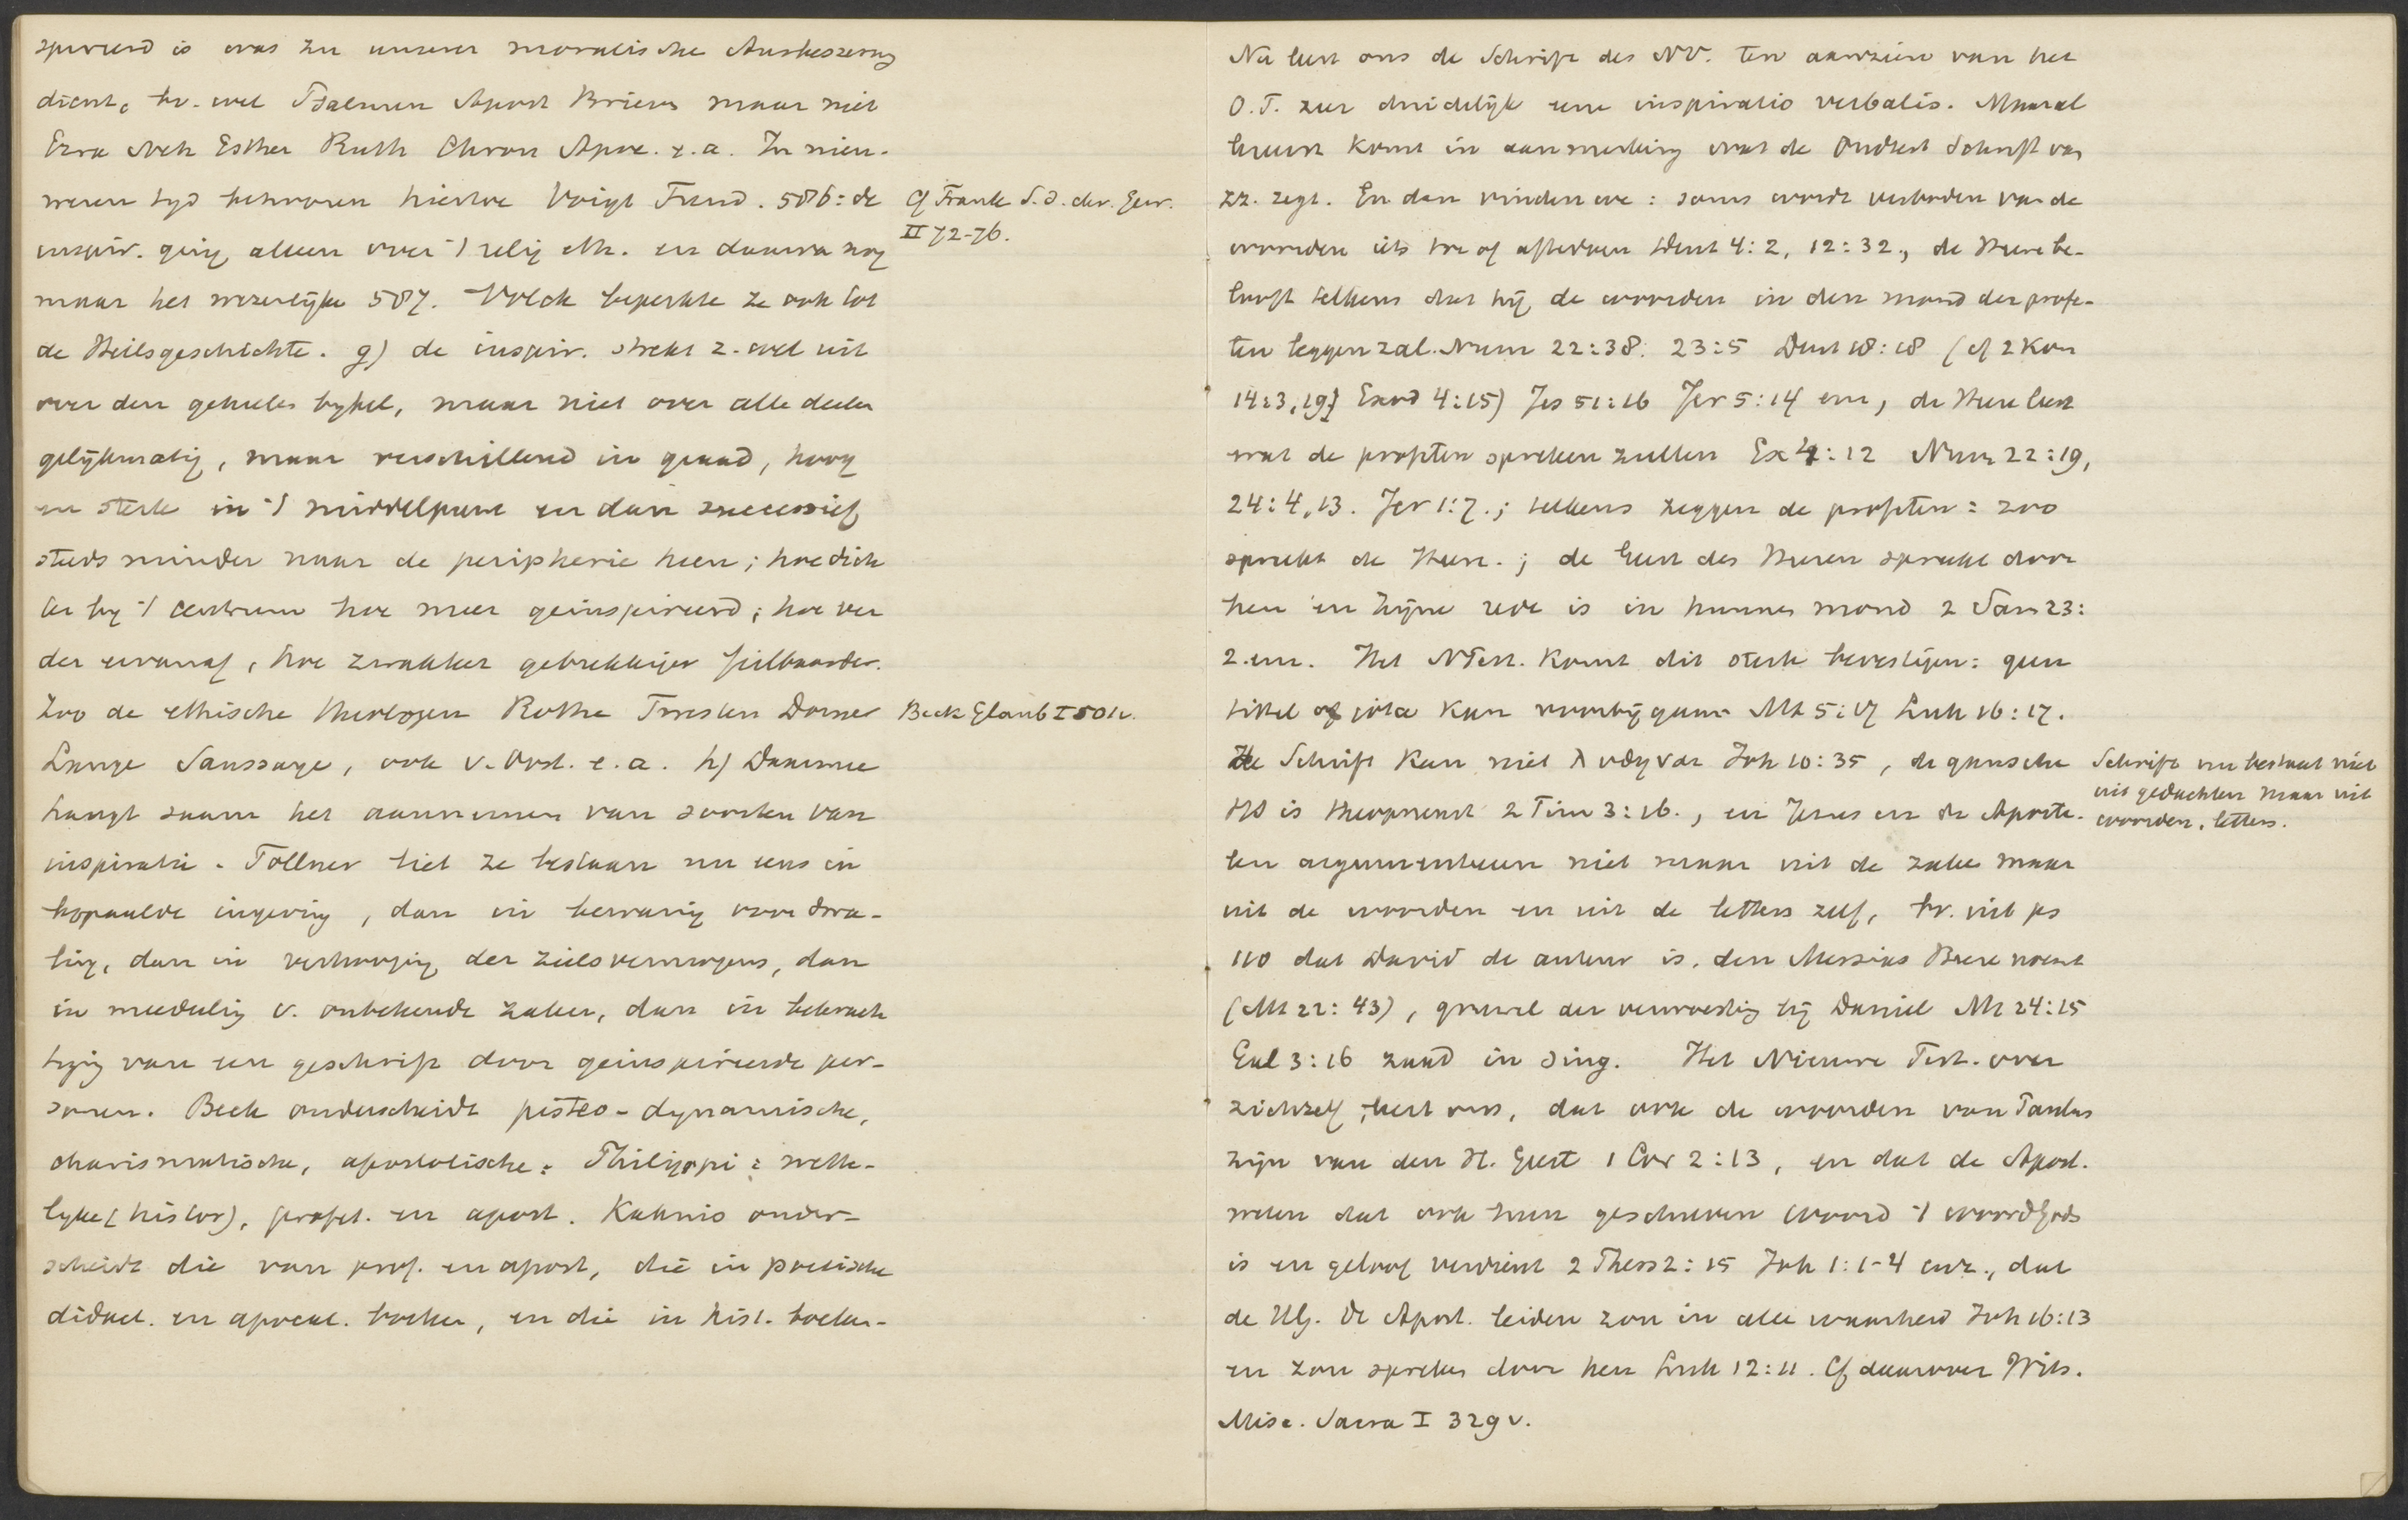 spireerd is was zu unserer moralische Ausbeszerung
dient, bv. wel Psalmen Apost Brieven maar niet
Ezra Neh Esther Ruth Chron Apoc. e.a. In nieu-
weren tyd behooren hiertoe Voigt Fund. 506: de
inspir. ging alleen over 't relig eth. en daarva nog
maar het wezenlijke 507. Volck beperkte ze ook tot
de Heilsgeschichte. g) de inspir. strekt z. wel uit
over den geheelen bybel, maar niet over alle deelen
gelijkmatig, maar verschillend in graad, hoog
en sterk in 't middelpunt en dan successief
steeds minder naar de peripherie heen; hoe dich
ter by 't centrum hoe meer geinspireerd; hoe ver
der ervanaf, hoe zwakker gebrekkiger feilbaarder.
Zoo de ethische theologen Rothe Twesten Dorner
Lange Saussaye, ook v. Oost. e.a. h) Daarmee
hangt saam het aannemen van soorten van
inspiratie. Tollner liet ze bestaan nu eens in
bepaalde ingeving, dan in bewaring voor dwa-
ling, dan in verhooging der zielsvermogens, dan
in meedeeling v. onbekende zaken, dan in bekrach
tiging van een geschrift door geinspireerde per-
sonen. Beck onderscheidt pisteo-dynamische,
charismatische, apostolische. Philippi: wette-
lyke (histor), profet. en apost. Kahnis onder-
scheidt die van prof. en apost, die in poetische
didact. en apocal. boeken, en die in hist. boeken.
Cf Frank S.d. chr. Gew.
II 72-76.
Beck Glaub I 501v.
Na leert ons de Schrift des NV. ten aanzien van het
O.T. zeer duidelijk eene inspiratio verbalis. Vooral
hierin komt in aanmerking wat de Oudtest Schrift van
zz. zegt. En dan vinden we: soms wordt verboden van de
woorden iets toe of aftedoen Deut 4:2, 12:32., de Heere be-
looft telkens dat hij de woorden in den mond der profe-
ten leggen zal. Num 22:38. 23:5 Deut 18:18 (cf 2 Kon
14:3,19) Exod 4:15) Jes 51:16 Jer 5:14 enz, de Heere leert
wat de profeten spreken zullen Ex 4:12 Num 22:19,
24:4,13. Jer 1:7.; telkens zeggen de profeten: zoo
spreekt de Heere.; de Geest des Heeren spreekt door
hen en zijne rede is in hunnen mond 2 Sam 23:
2.enz. Het NTest. komt dit sterk bevestigen: geen
tittel of jota kan voorbijgaan Mt 5:17 Luk 16:17.
De Schrift kan niet λυθηναι Joh 10:35, de gansche
HS is theopneust 2 Tim 3:16., en Jezus en de Aposte-
len argumenteeren niet maar uit de zake maar
uit de woorden en uit de letters zelf, bv. uit ps
110 dat David de auteur is, den Messias Heere noemt
(Mt 22:43), gruwel der verwoesting bij Daniel Mt 24:15
Gal 3:16 zaad in sing. Het Nieuwe Test. over
zichzelf, leert ons, dat ook de woorden van Paulus
zijn van den H. Geest 1 Cor 2:13, en dat de Apost.
weten dat ook hun geschreven woord 't woord Gods
is en geloof verdient 2 Thess 2:15 Joh 1:1-4 enz., dat
de HG. de Apost. leiden zou in alle waarheid Joh 16:13
en zou spreken door hen Luk 12:11. Cf daarover Wits.
Misc. Sacra I 329v.
Schrift nu bestaat niet
uit gedachten maar uit
woorden, letters.